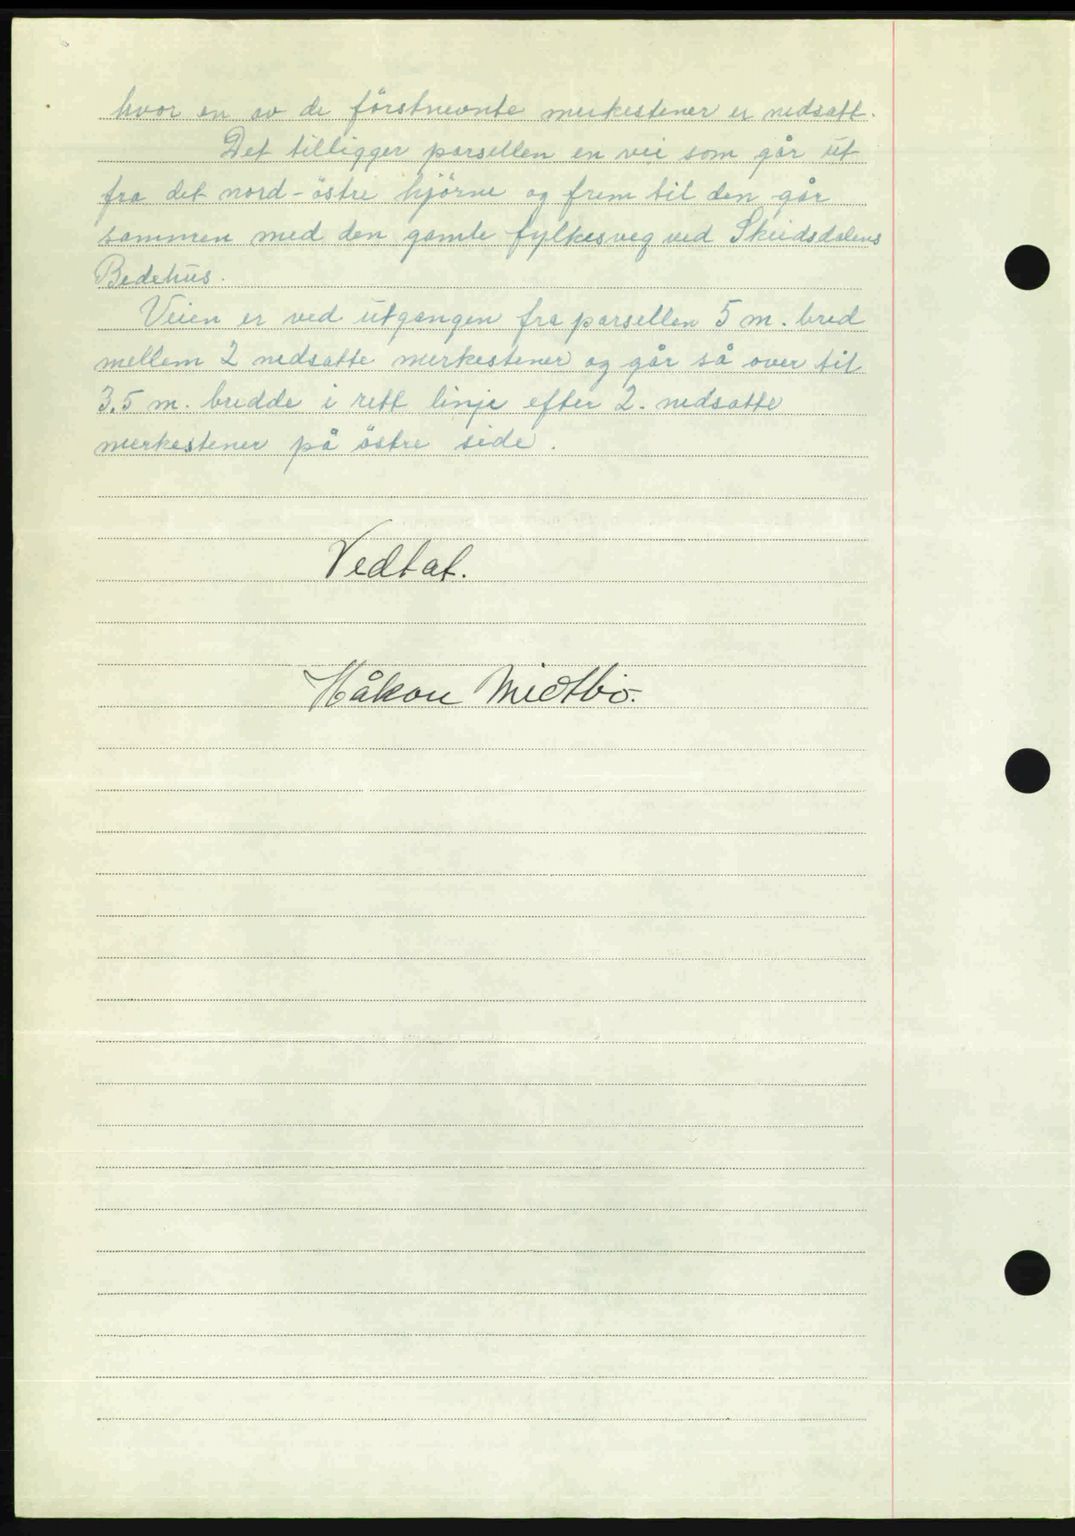 hvor en av de förstnevnte merkestener er nedsatt.
Det tilligger parsellen en vei som går ut
fra det nord-östre hjörne og frem til den går
sammen med den gamle fylkesveg ved Skeidsdalens
Bedehus.
Veien er ved utgangen fra parsellen 5 m. bred
mellem 2 nedsatte merkestener og går så over til
3.5 m. bredde i rett linje efter 2. nedsatte
merkestener på östre side.
Vedtat.
Håkon Midtbö.